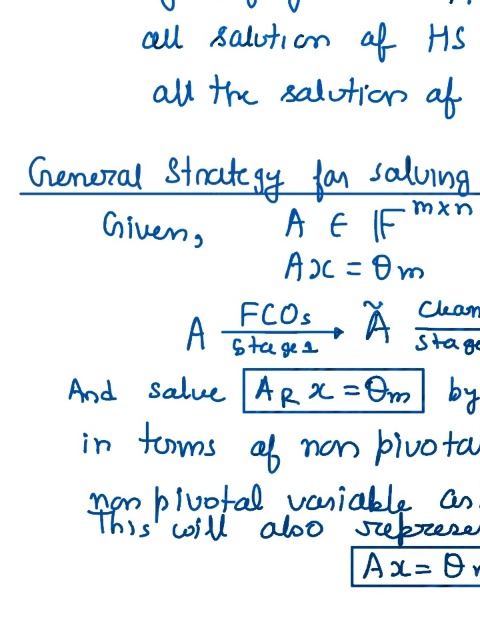 all solution of HS
all the solution of
General Strategy for solving
Given, A ∈ F^{m×n}
Ax = θm
A FCOs Stage 1 → Ã Clean Stage
And solve A_R x = θm by
in terms of non pivota
non pivotal variable as
This will also represe
Ax = θ